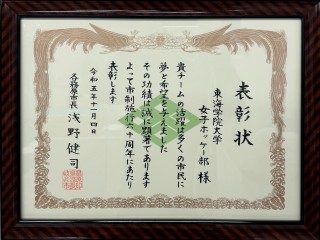 表彰状
東海学院大学
女子ホッケー部 様
貴チームの活躍は多くの市民に
夢と希望を与えました
その功績は誠に顕著であります
よって市制施行六十周年にあたり
表彰します
令和五年十一月四日
各務原市長 浅野健司